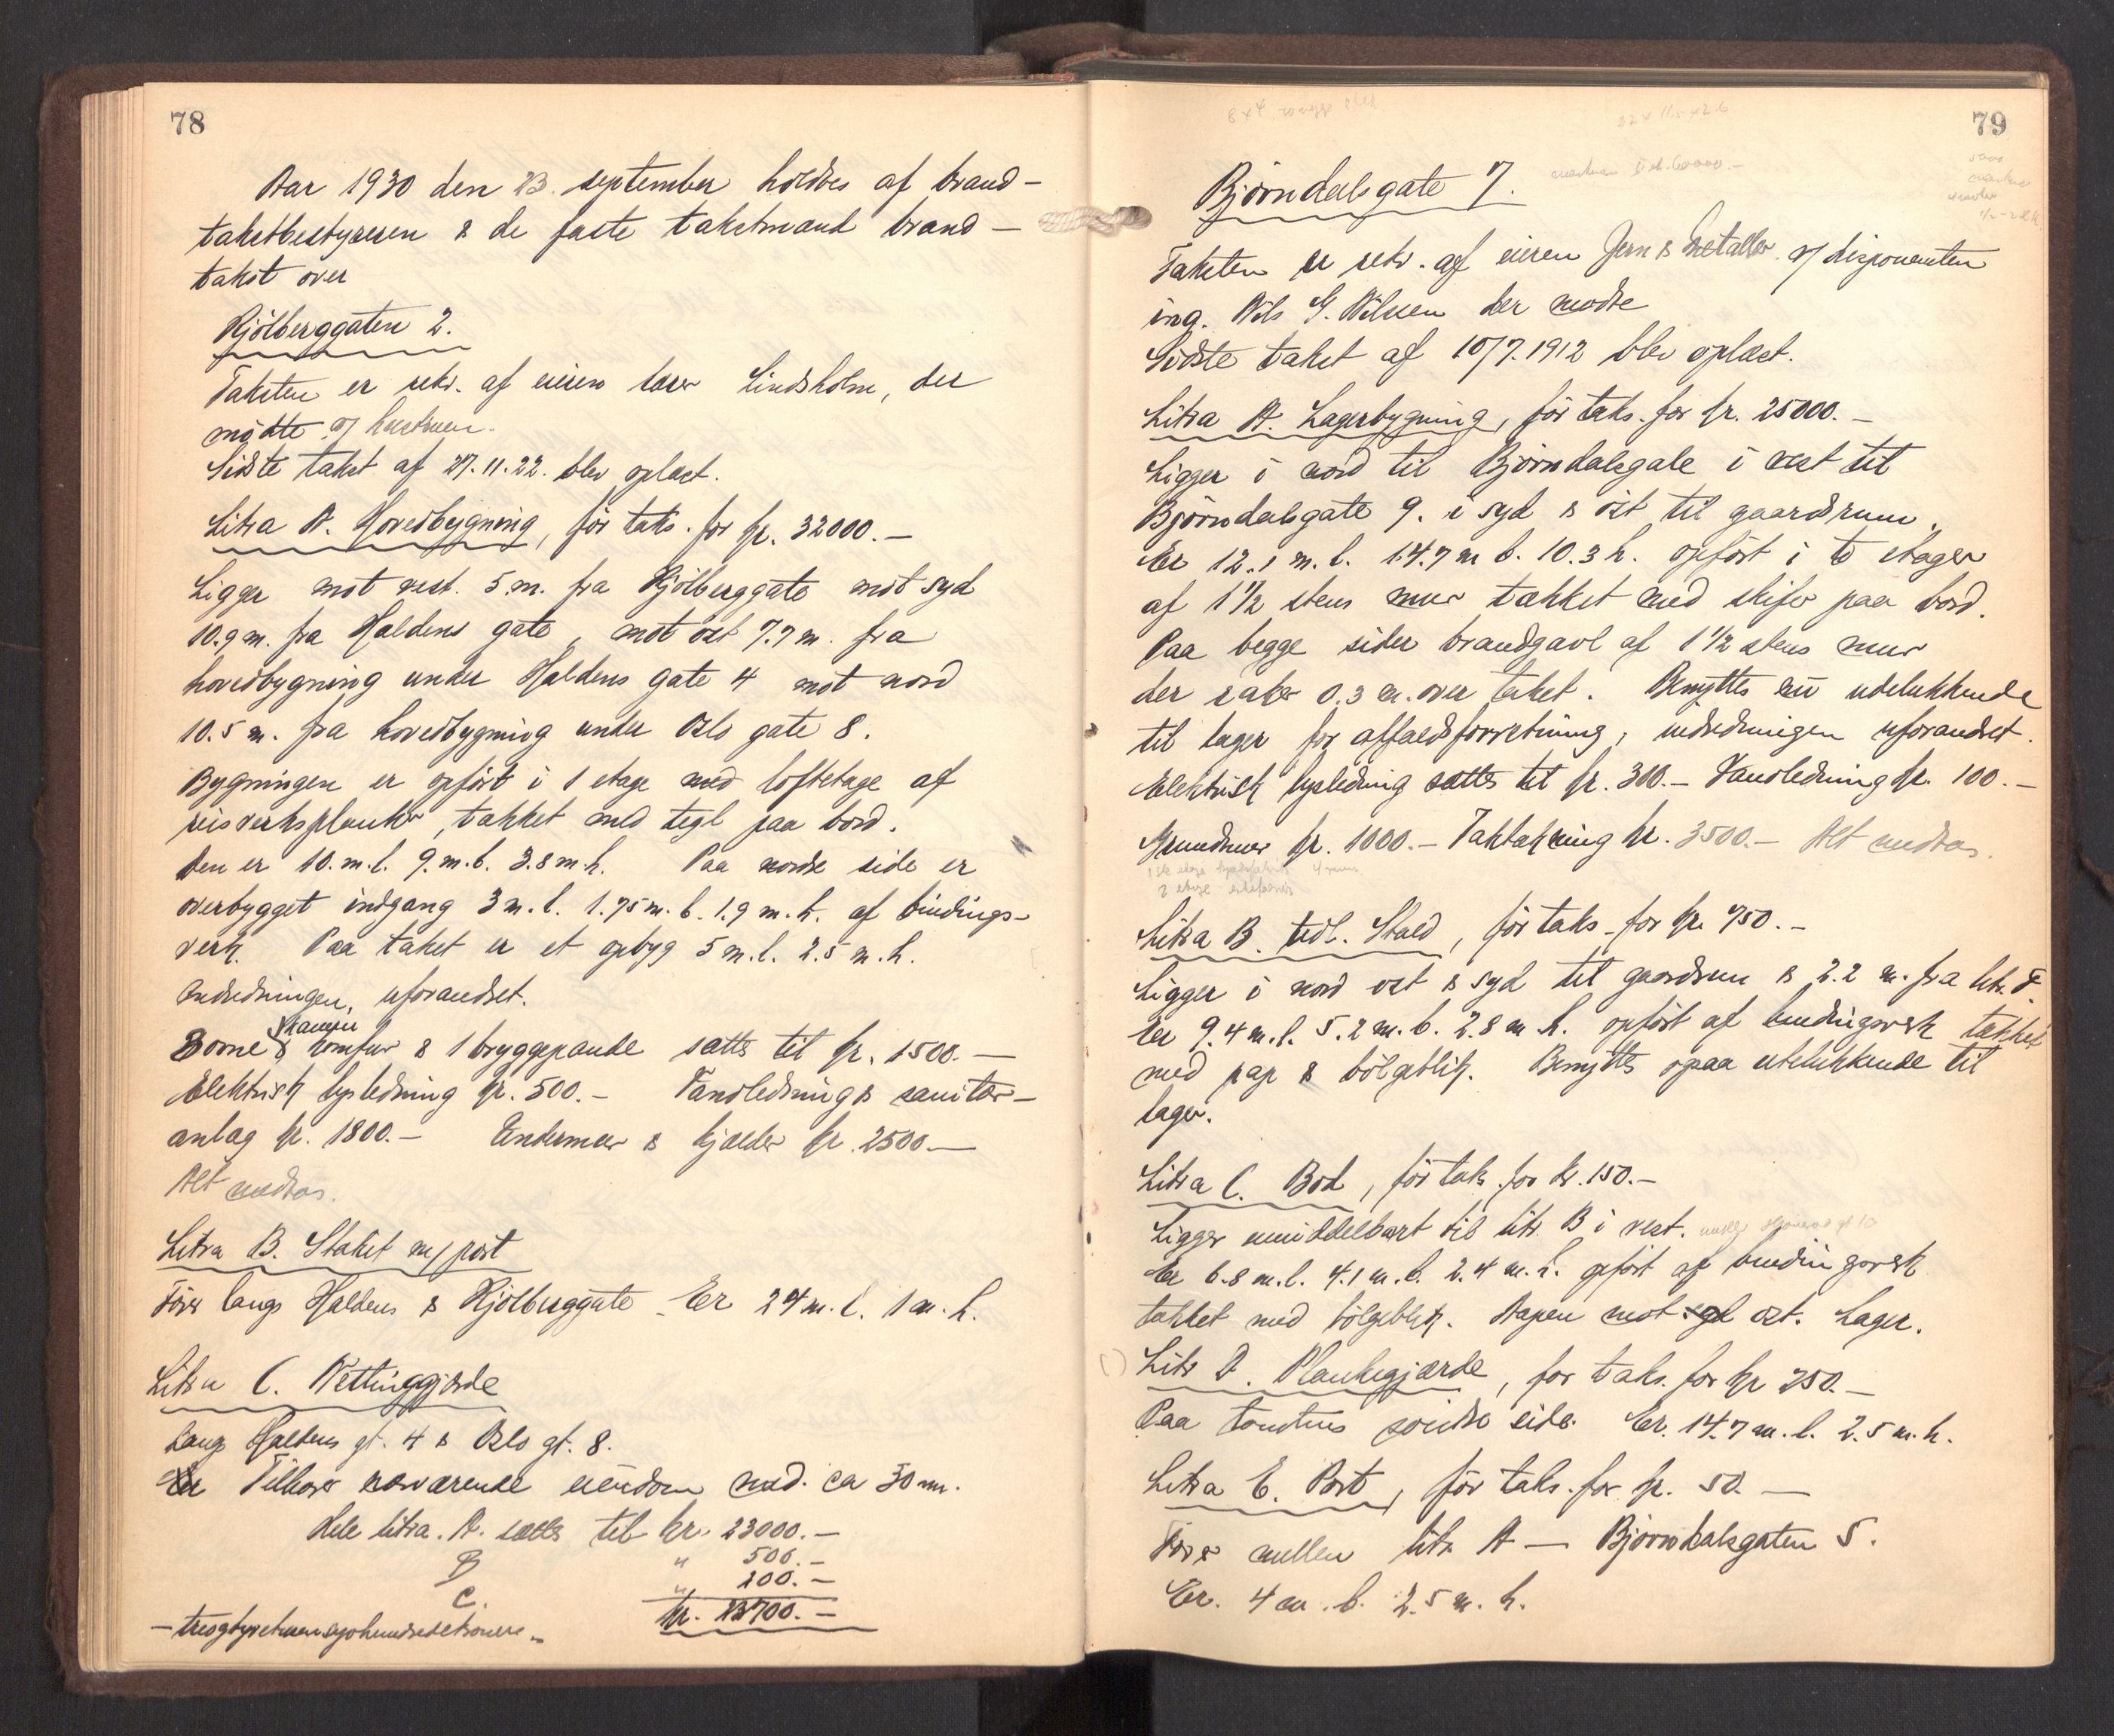 78
Aar 1930 den 23. september holdtes af brand-
takstbestyreren & de faste takstmænd brand-
takst over
Hjølberggaten 2.
Taksten er rekv. af eieren lærer Lindsholm, der
mødte v/ hustruen.
Sidste takst af 27.11.22. blev oplæst.
Litra A. Hovedbygning, før taks. for kr. 32000.-
Ligger mot vest. 5 m. fra Hjølberggate mot syd
10.9 m. fra Haldens gate, mot øst 7.7 m. fra
hovedbygning under Haldens gate 4 mot nord
10.5 m. fra hovedbygning under Oslo gate 8.
Bygningen er opført i 1 etage med loftetage af
reisverksplanker, tækket med tegl paa bord.
Den er 10. m. l. 9. m. b. 3.8 m. h. Paa nordre side er
overbygget indgang 3 m. l. 1.75 m. b. 1.9 m. h. af bindings-
verk. Paa taket er et opbyg 5 m. l. 2.5 m. h.
Indredningen, uforandret.
3 orne & komfur & 1 bryggepande sættes til kr. 1500.-
Elektrisk lysledning kr. 500.- Vandledning & sanitær-
anlæg kr. 1800.- Undermur & kjælder kr. 2500.-
Alt medtas.
Litra B. Staket m/port
Fører langs Haldens & Hjølberggate - Er 24 m. l. 1 m. h.
Litra C. Nettinggjerde
Langs Haldens gt. 4 & Oslo gt. 8.
Tilhører nærværende eiendom med. ca 30 m.
Hele litra. A. sættes til kr. 23000.-
B " 500.-
C. " 200.-
kr. 23700.-
- treogtyvetusensyvhundredekroner -
79
Bjørndalsgate 7.
Taksten er rekv. af eieren Jern & Metaller v/ disponenten
ing. Nils G. Nilsen der mødte
Sidste takst af 10/7.1912 blev oplæst.
Litra A. Lagerbygning, før taks. for kr. 25000.-
Ligger i nord til Bjørndalsgate i vest til
Bjørndalsgate 9. i syd & øst til gaardsrum.
Er 12.1 m. l. 14.7 m b. 10.3 h. opført i to etager
af 1 1/2 stens mur tækket med skifer paa bord.
Paa begge sider brandgavl af 1 1/2 stens mur
der raker 0.3 m. over taket. Benyttes nu udelukkende
til lager for affaldsforretning, indredningen uforandret.
Elektrisk lysledning sættes til kr. 300.- Vandledning kr. 100.-
Grundmur kr. 1000.- Taktækning kr. 3500.- Alt medtas.
Litra B. tidl. Stald, før taks. for kr. 750.-
Ligger i nord øst & syd til gaardsrum & 2.2 m. fra litr. F.
Er 9.4 m. l. 5.2 m. b. 2.8 m h. opført af bindingsverk tækket
med pap & bølgeblik. Benyttes ogsaa utelukkende til
lager.
Litra C. Bod, før taks. for kr. 150.-
Ligger umiddelbart til litr. B i vest.
Er 6.8 m. l. 4.1 m. b. 2.4 m. h. opført af bindingsverk
tækket med bølgeblik. Aapen mot syd øst. Lager.
Litr D. Plankegjærde, før taks. for kr 250.-
Paa tomtens søndre side. Er. 14.7 m. l. 2.5 m. h.
Litra E. Port, før taks. for kr. 50.-
Fører mellem litr. A - Bjørndalsgaten 5.
Er. 4 m. b. 2.5 m. h.